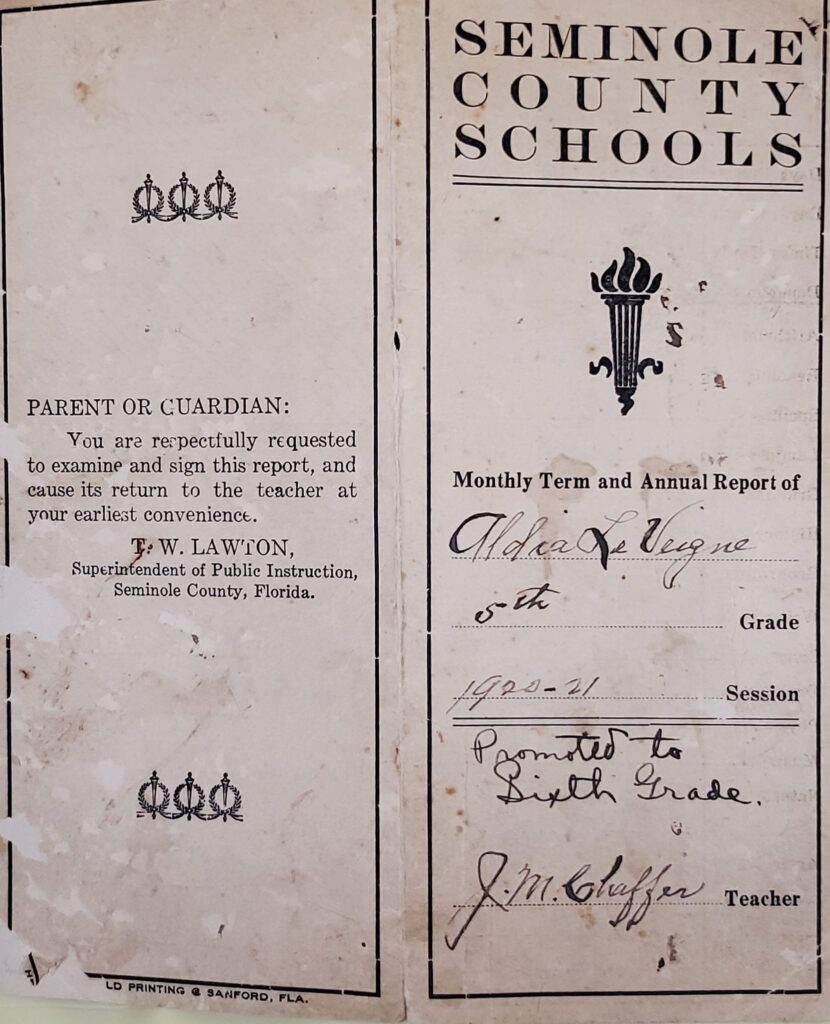 PARENT OR GUARDIAN:
You are respectfully requested
to examine and sign this report, and
cause its return to the teacher at
your earliest convenience.
T. W. LAWTON,
Superintendent of Public Instruction,
Seminole County, Florida.
LD PRINTING @ SANFORD, FLA.
SEMINOLE
COUNTY
SCHOOLS
Monthly Term and Annual Report of
Aldia Le Veigne
5th Grade
1920-21 Session
Promoted to
Sixth Grade.
J. M. Chaffer Teacher